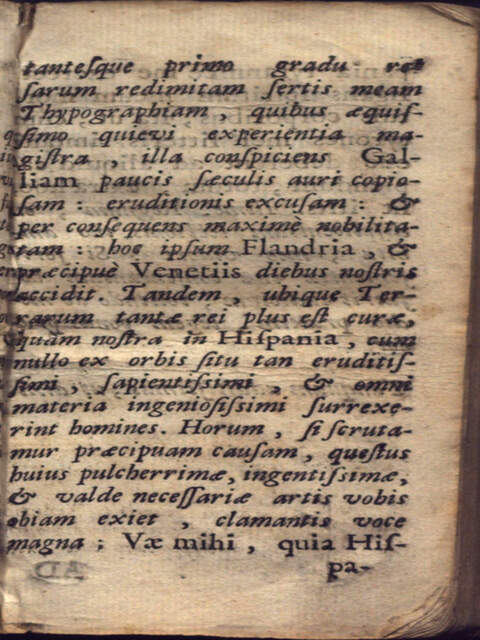 tanteſque primo gradu ro-
ſarum redimitam ſertis meam
Thypographiam, quibus æquiſ-
ſimo quievi experientia ma-
giſtra, illa conſpiciens Gal-
liam paucis ſæculis auri copio-
ſam: eruditionis excuſam: &
per conſequens maximè nobilita-
tam: hoc ipſum Flandria, &
præcipuè Venetiis diebus noſtris
accidit. Tandem, ubique Ter-
rarum tantæ rei plus eſt curæ,
quàm noſtra in Hiſpania, cum
nullo ex orbis ſitu tan eruditiſ-
ſimi, ſapientiſſimi, & omni
materia ingenioſiſſimi ſurrexe-
rint homines. Horum, ſi ſcruta-
mur præcipuam cauſam, queſtus
huius pulcherrimæ, ingentiſſimæ,
& valde neceſſariæ artis vobis
obiam exiet, clamantis voce
magna; Væ mihi, quia Hiſ-
pa-